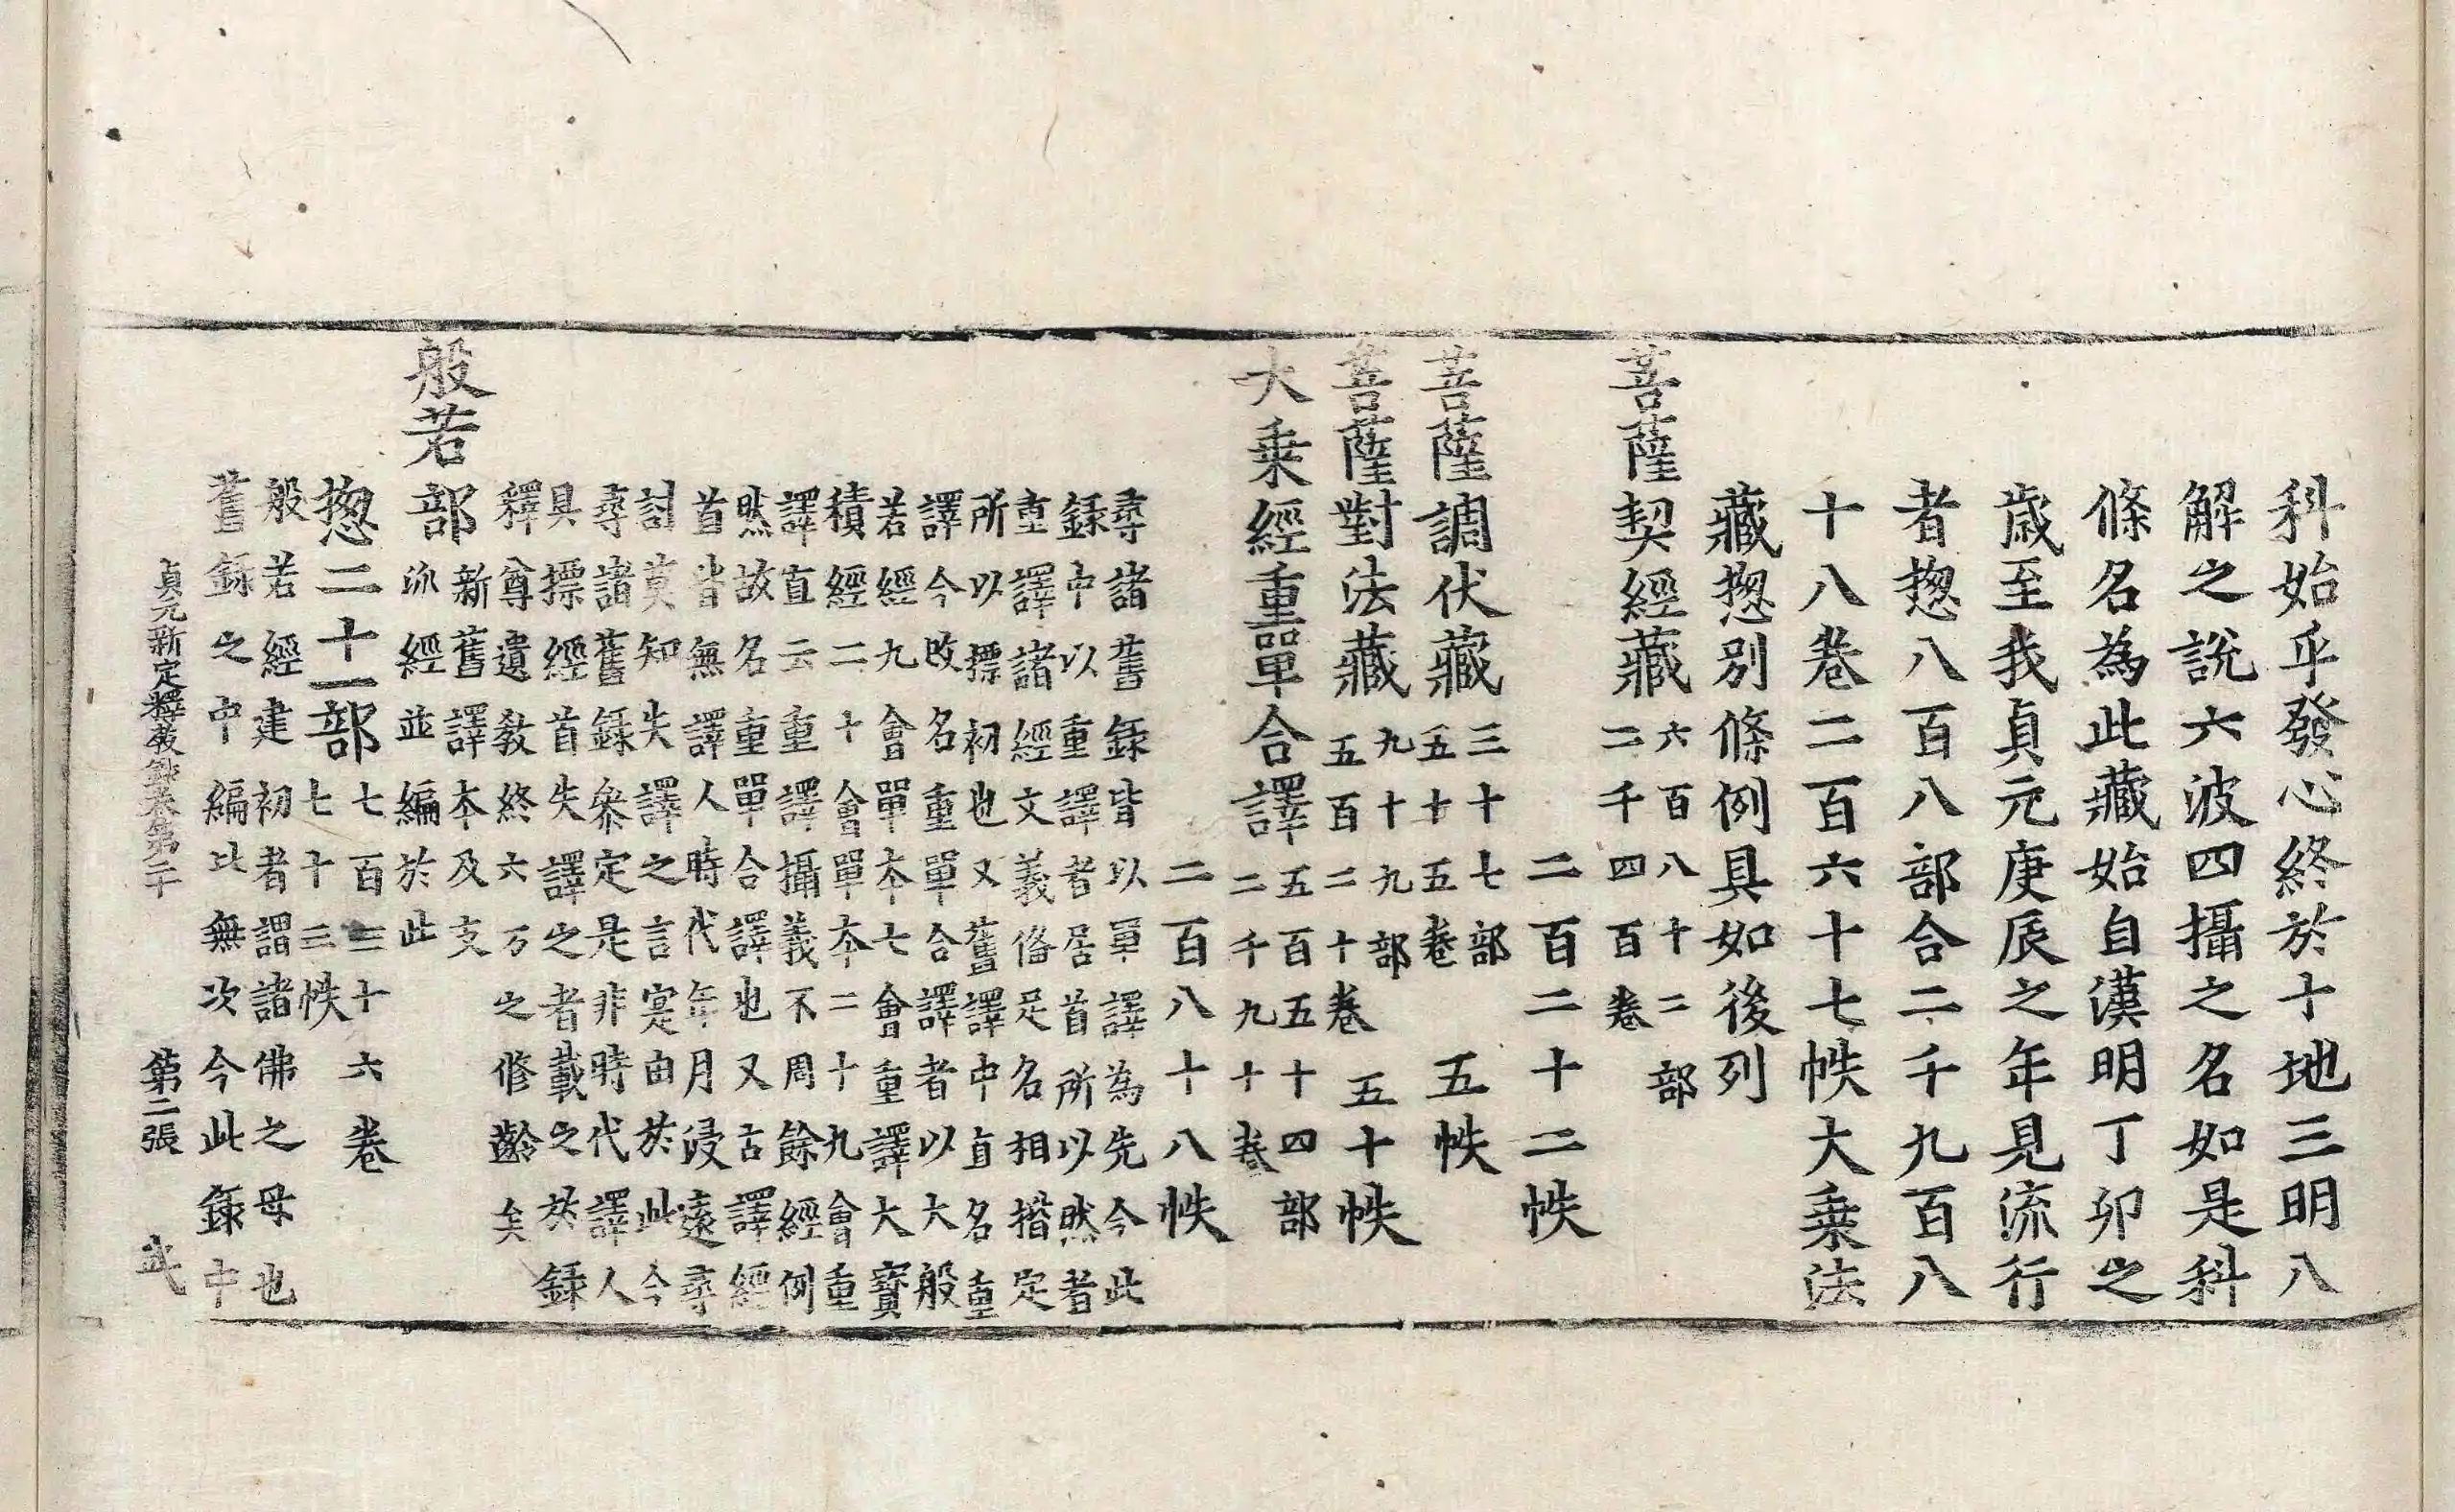 科始乎發心終於十地三明八
解之說六波四攝之名如是科
條名為此藏始自漢明丁卯之
歲至我貞元庚辰之年見流行
者揔八百八部合二千九百八
十八卷二百六十七帙大乗法
藏揔別條例具如後列
菩薩契經藏六百八十二部
二千四百卷
二百二十二帙
菩薩調伏藏三十七部
五十五卷
五帙
菩薩對法藏九十九部
五百二十卷
五十帙
大乗經重單合譯五百五十四部
二千九十卷
二百八十八帙
尋諸舊錄皆以單譯為先今此
錄中以重譯者居首所以然者
重譯諸經文義俻足名相揩定
所以摽初也又舊譯中直名重
譯今改名重單合譯者以大般
若經九會單夲七會重譯大寶
積經二十會單夲二十九會重
譯直云重譯攝義不周餘經例
然故名重單合譯也又古譯經
首皆無譯人時代年月浸遠尋
討莫知失譯之言寔由於此今
尋諸舊錄叅定是非時代譯人
具摽經首失譯之者載之於錄
釋尊遺教終六万之修齡矣
般若部新舊譯夲及支
泒經並編於此
揔二十一部七百三十六卷
七十三帙
般若經建初者謂諸佛之母也
舊錄之中編比無次今此錄中
貞元新定釋教錄卷第二十 第二張 武